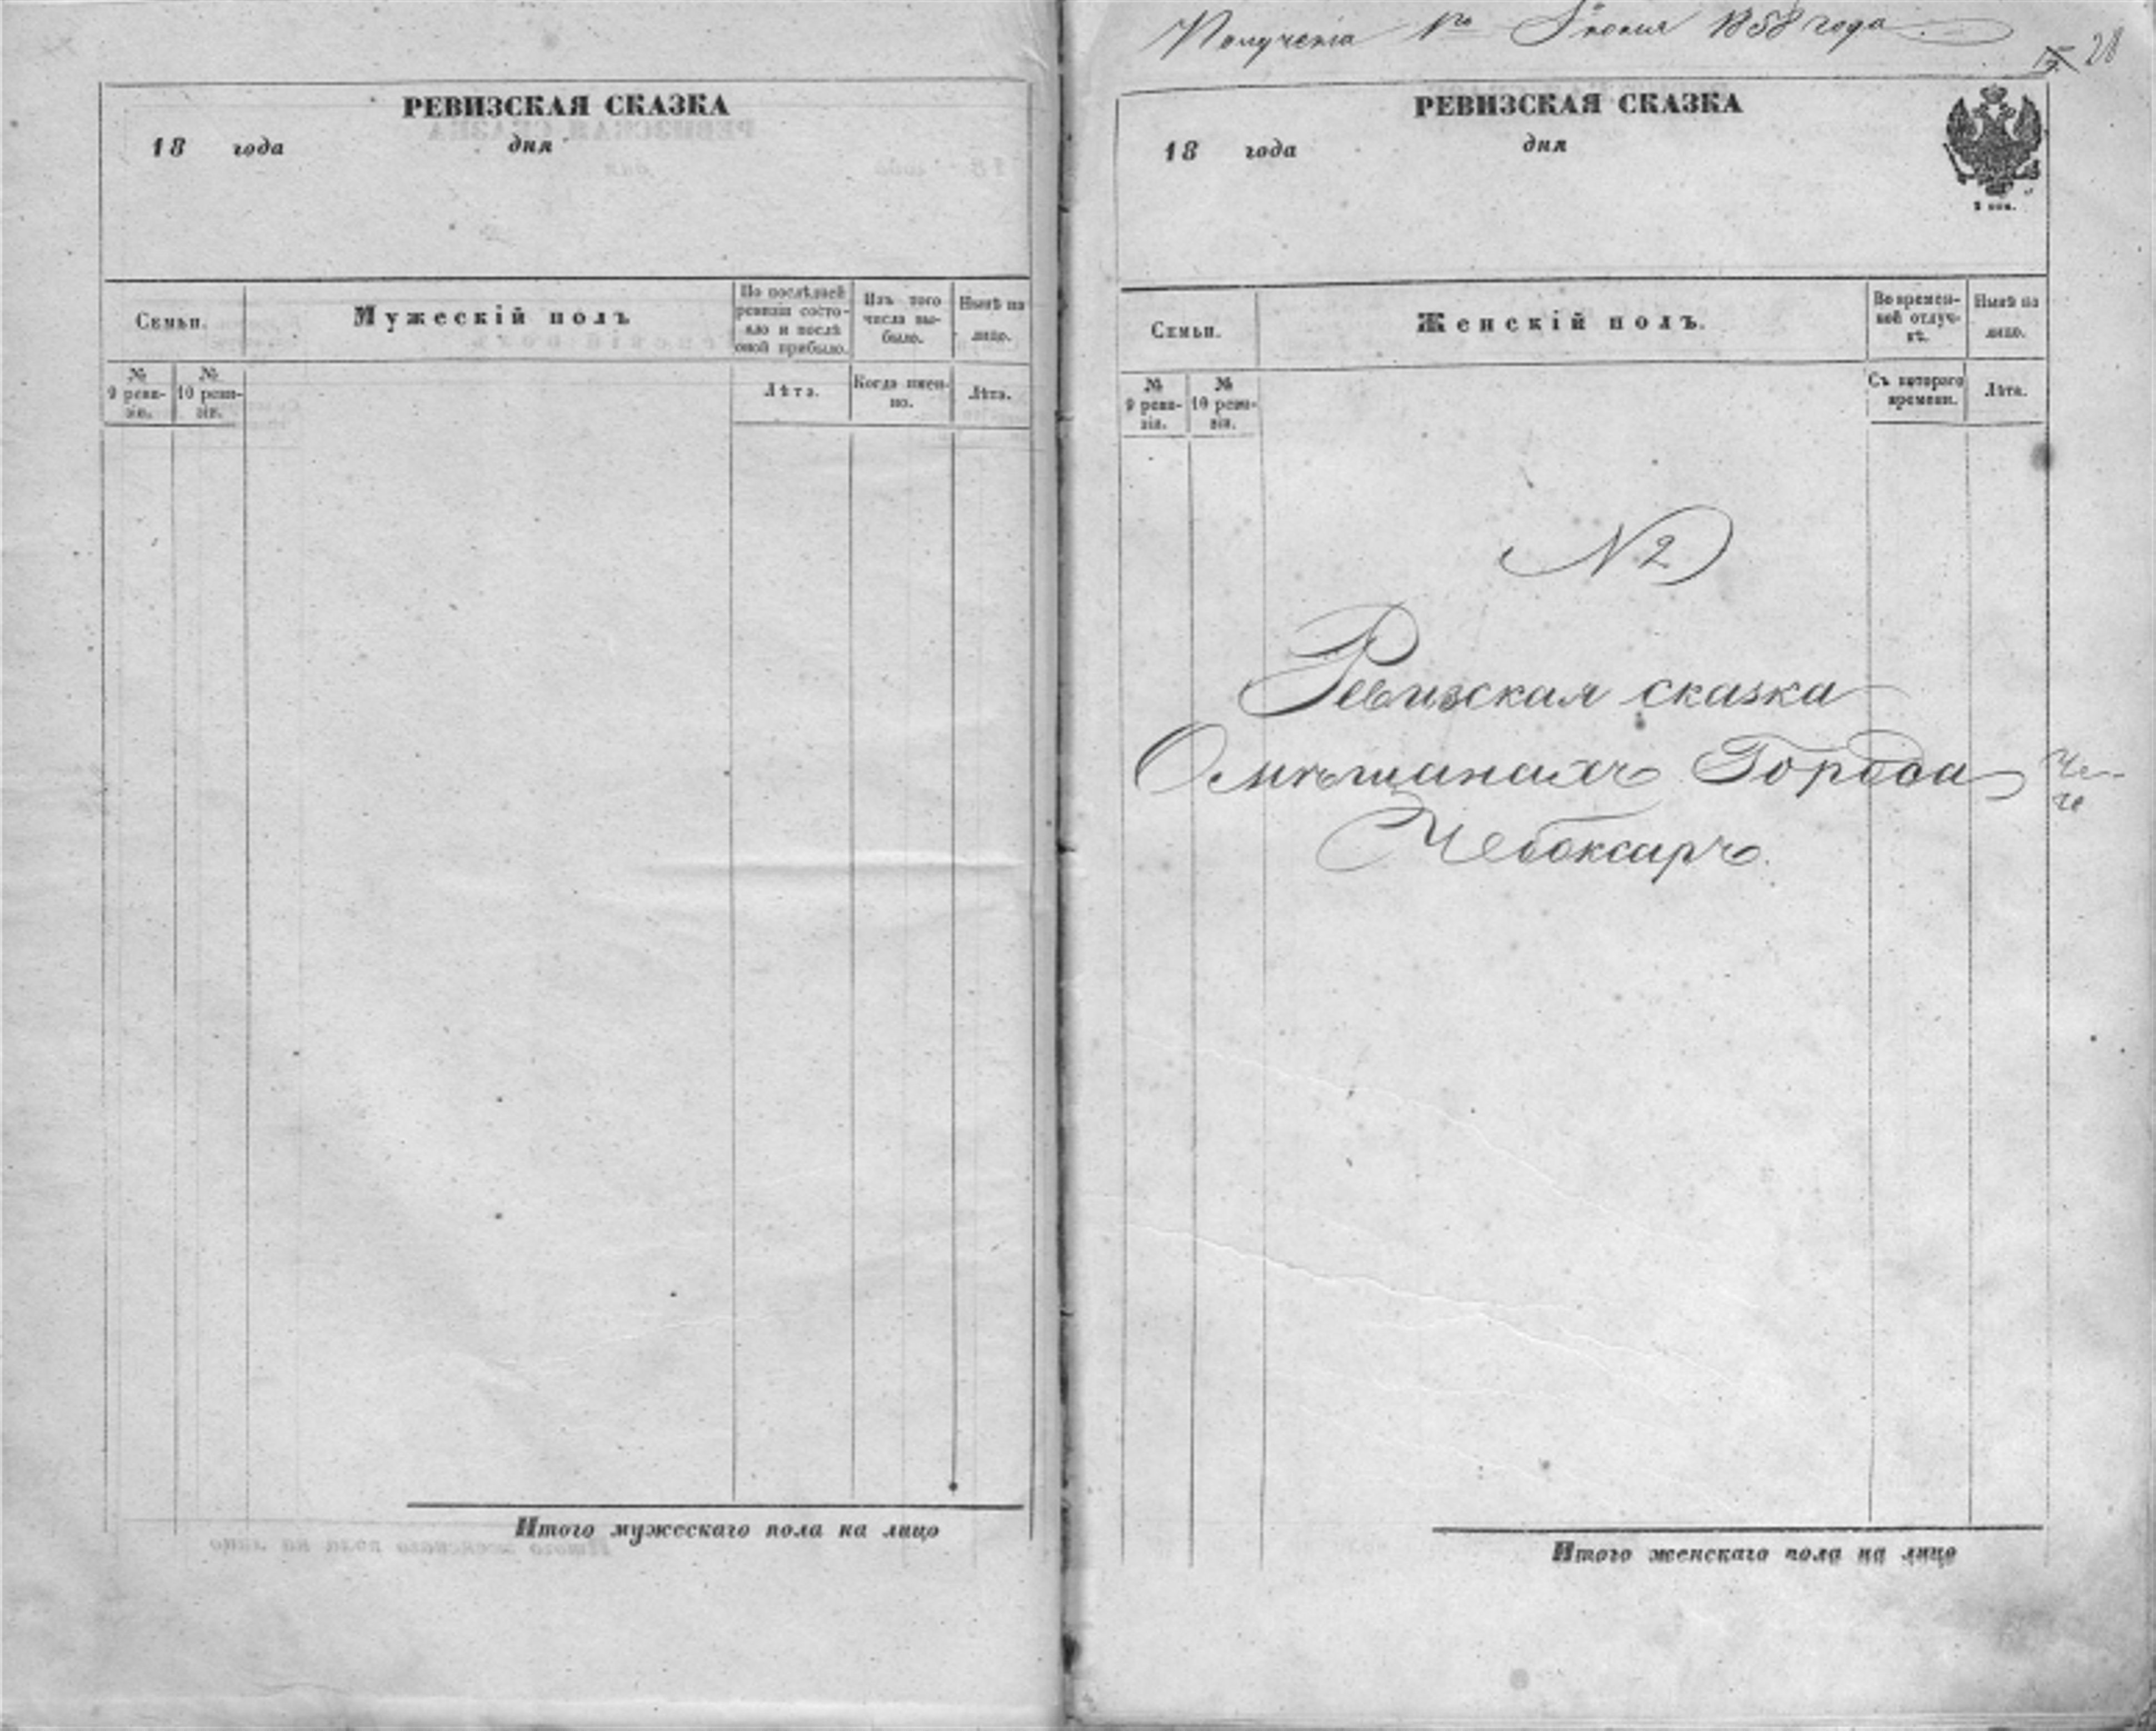 РЕВИЗСКАЯ СКАЗКА
18 года дня
Семьи.
Мужескій полъ
По послѣдней
ревизіи состо-
яло и послѣ
оной прибыло.
Изъ того
числа вы-
было.
Нынѣ на
лицо.
№
9 реви-
зіи.
№
10 реви-
зіи.
Лѣта.
Когда имен-
но.
Лѣта.
Итого мужескаго пола на лицо
1го 1858 года
28
РЕВИЗСКАЯ СКАЗКА
18 года дня
Семьи.
Женскій полъ.
Во времен-
ной отлуч-
кѣ.
Нынѣ на
лицо.
№
9 реви-
зіи.
№
10 реви-
зіи.
Съ котораго
времени.
Лѣта.
N 2
Ревизская сказка
О мѣщанахъ Города
Чебоксаръ.
Итого женскаго пола на лицо